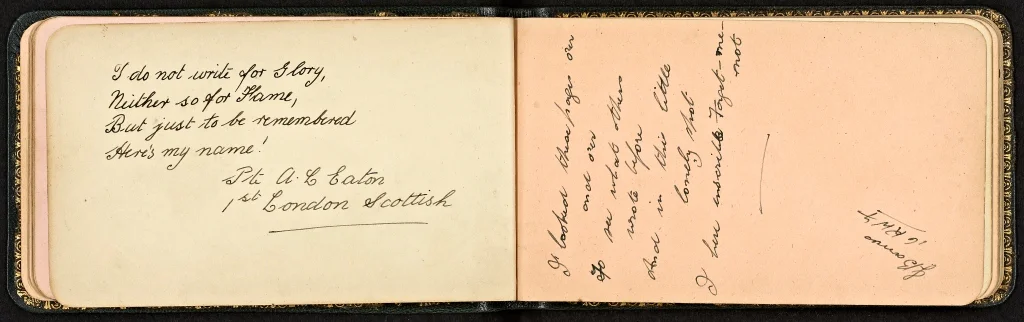 I do not write for Glory,
Neither so for Fame,
But just to be remembered
Here's my name!
Pte A. L Eaton
1st London Scottish
I looked these pages over
and over
To see what others
wrote before
And in this little
lonely spot
I here inscribe Forget-me-
not